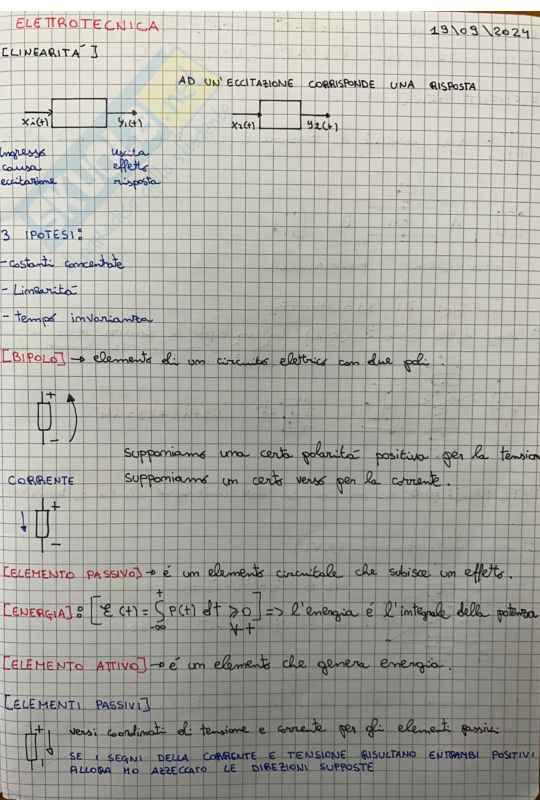 ELETTROTECNICA
19\09\2024
[LINEARITÁ]
AD UN'ECCITAZIONE CORRISPONDE UNA RISPOSTA
x1(t) y1(t) x2(t) y2(t)
ingresso uscita
causa effetto
eccitazione risposta
3 IPOTESI:
- costanti concentrate
- Linearitá
- tempo invarianza
[BIPOLO] → elemento di un circuito elettrico con due poli.
+
-
Supponiamo una certa polaritá positiva per la tension
CORRENTE Supponiamo un certo verso per la corrente.
+
-
[ELEMENTO PASSIVO] → é un elemento circuitale che subisce un effetto.
[ENERGIA]: [ℰ(t) = ∫-∞t P(t) dt ≥ 0 ∀t] => l'energia é l'integrale della potenza
[ELEMENTO ATTIVO] → é un elemento che genera energia.
[ELEMENTI PASSIVI]
+ versi coordinati di tensione e corrente per gli elementi passivi
- SE I SEGNI DELLA CORRENTE E TENSIONE RISULTANO ENTRAMBI POSITIVI
ALLORA HO AZZECCATO LE DIREZIONI SUPPOSTE